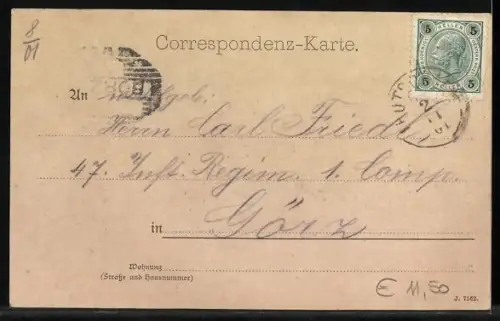 8/01
Correspondenz-Karte.
5 HELLER 5
An
Herrn Carl Friedl
47. Inft. Regim. 1. Comp.
in Görz
Wohnung
(Straße und Hausnummer)
€ 11,50
J. 7162.